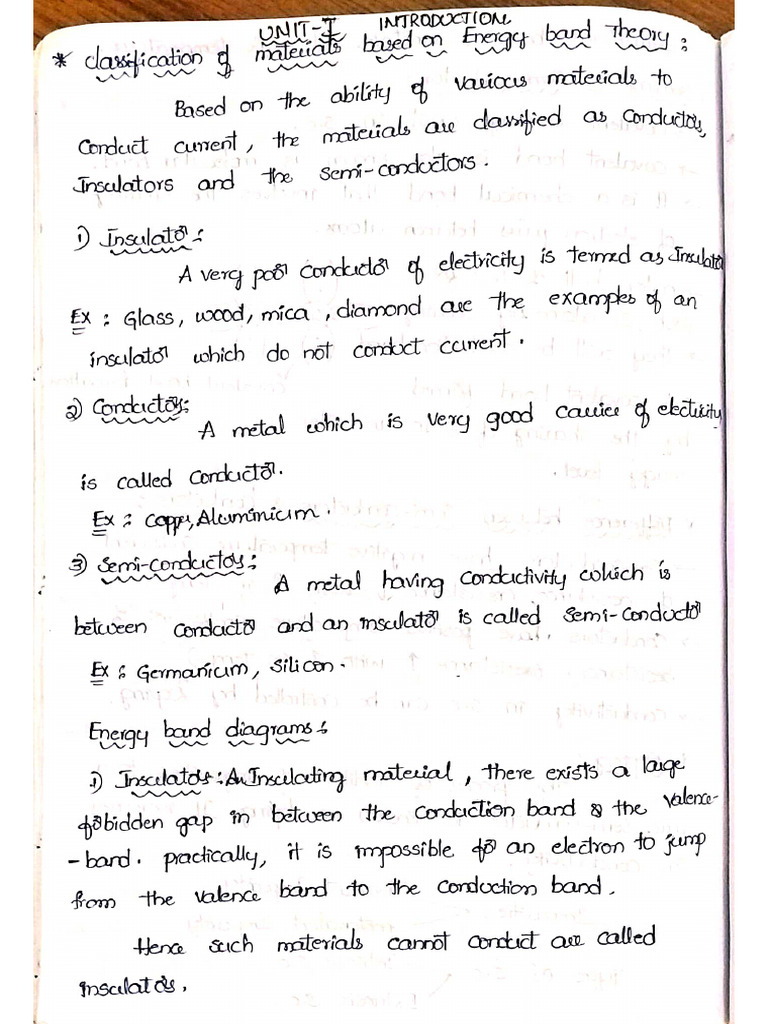 UNIT-I INTRODUCTION
* Classification of materials based on Energy band Theory:
Based on the ability of various materials to
Conduct current, the materials are classified as Conductors,
Insulators and the Semi-conductors.
1) Insulator:
A very poor conductor of electricity is termed as Insulator
Ex: Glass, wood, mica, diamond are the examples of an
insulator which do not conduct current.
2) Conductors:
A metal which is very good carrier of electricity
is called conductor.
Ex: Copper, Aluminium.
3) Semi-conductors:
A metal having conductivity which is
between conductor and an insulator is called Semi-Conductor
Ex: Germanium, Silicon.
Energy band diagrams:
1) Insulators: An Insulating material, there exists a large
forbidden gap in between the conduction band & the valence-
-band. practically, it is impossible for an electron to jump
from the valence band to the conduction band.
Hence such materials cannot conduct are called
insulators.